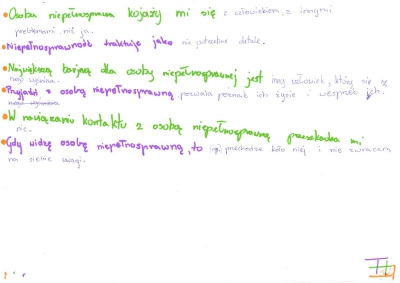 • Osoba niepełnosprawna kojaży mi się z człowiekiem, z innymi
problemami, niż ja.
• Niepełnosprawność traktuję jako nie potrzebne detale.
• Największą barierą dla osoby niepełnosprawnej jest inny człowiek, który się z
• Przyjaźń z osobą niepełnosprawną pozwala poznać ich życie i wesprzeć ich.
• W nawiązaniu kontaktu z osobą niepełnosprawną przeszkadza mi
nic.
• Gdy widzę osobę niepełnosprawną, to przechodzę koło niej i nie zwracam
na siebie uwagi.